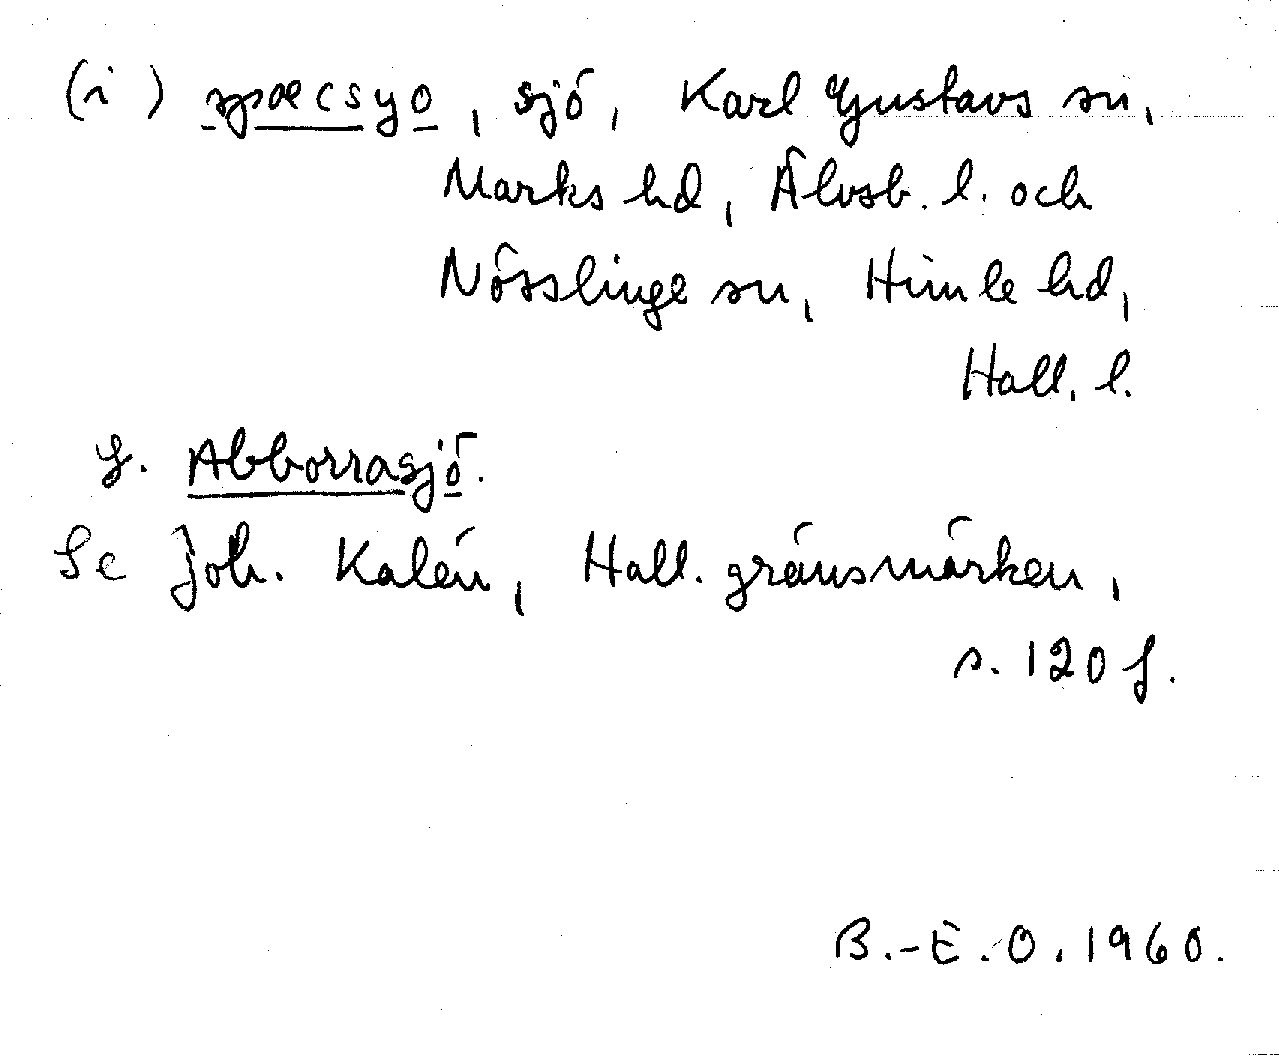 (i) spæcsyo, sjö, Karl Gustavs sn,
Marks hd, Älvsb. l. och
Nösslinge sn, Himle hd,
Hall. l.
f. Abborrasjö.
Se Joh. Kalén, Hall. gränsmärken,
s. 120 f.
B.-E. O. 1960.